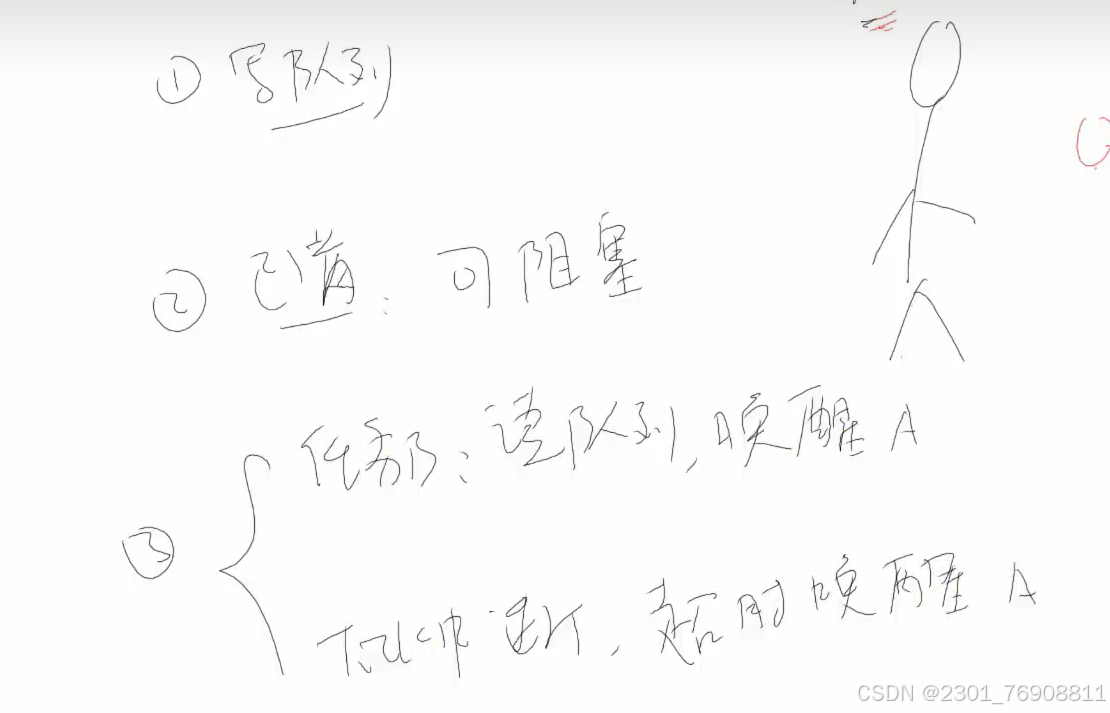 ① 写队列
② 已满:可阻塞
③ 任务B:读队列,唤醒A
Tick中断,超时唤醒A
CSDN @2301_76908811